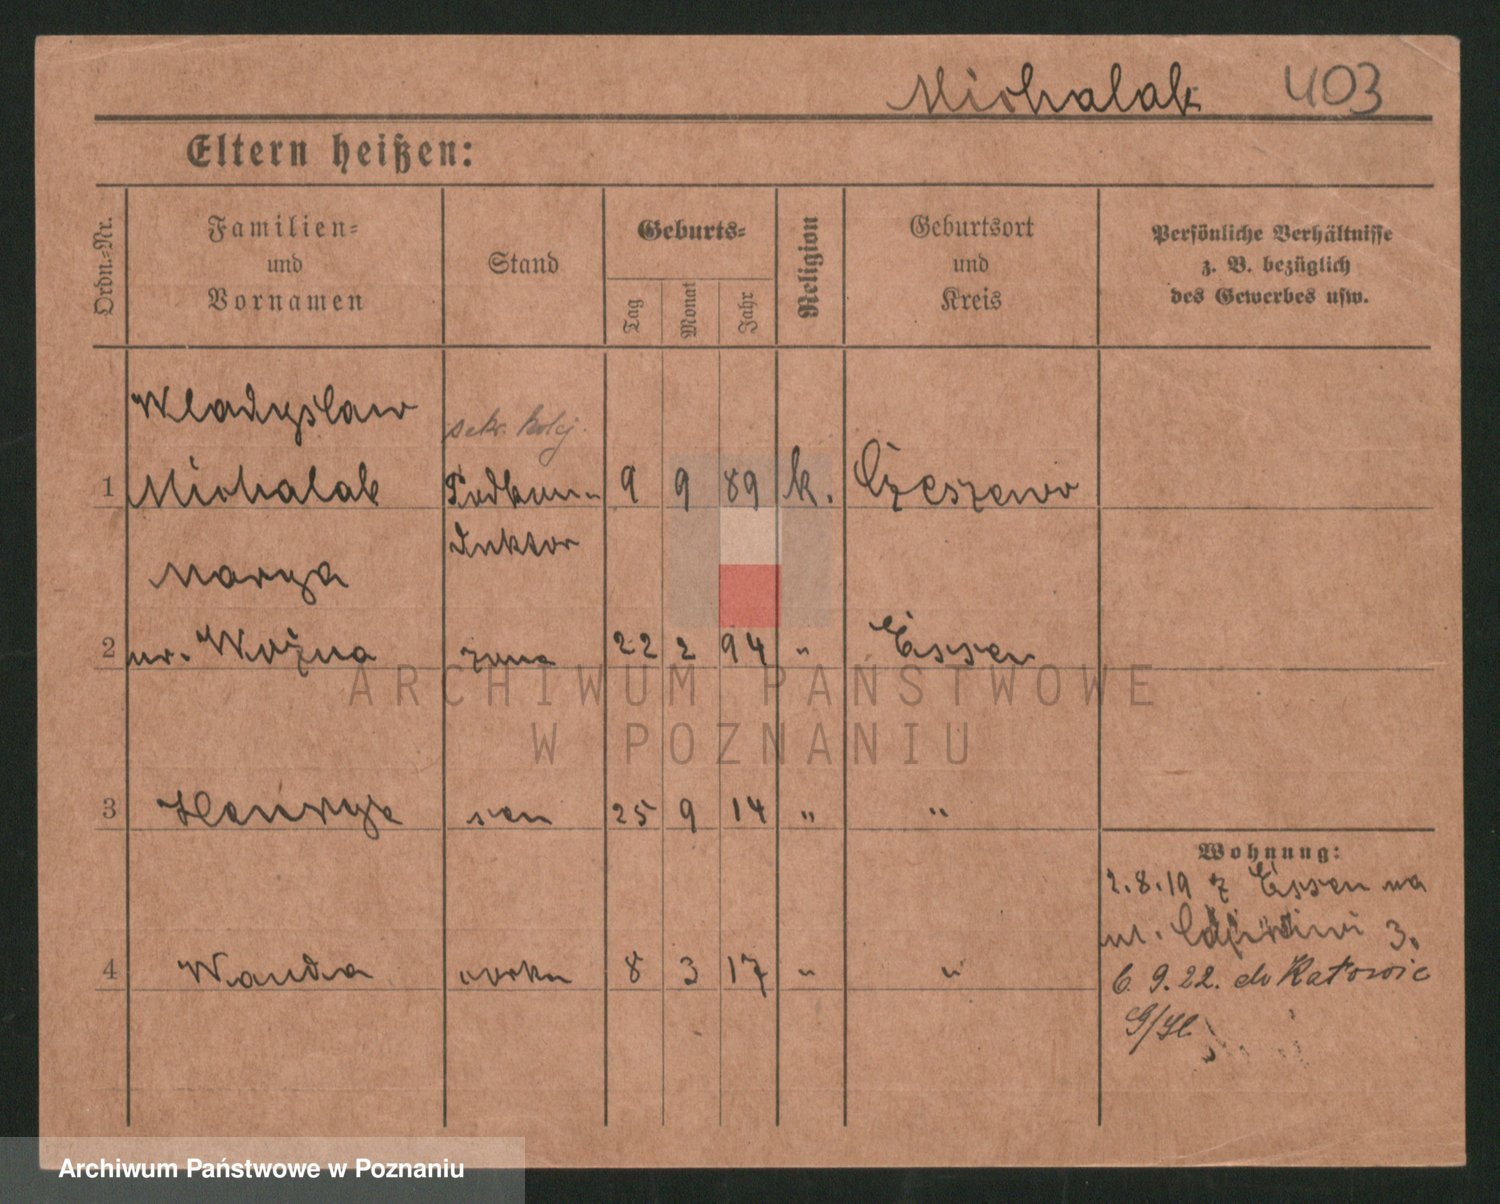 Michalak 403
Eltern heißen:
Ordn.-Nr.
Familien-
und
Vornamen
Stand
Geburts-
Tag
Monat
Jahr
Religion
Geburtsort
und
Kreis
Persönliche Verhältnisse
z. B. bezüglich
des Gewerbes usw.
Wladyslaw
sekr. kolej.
1 Michalak Podkon- 9 9 89 k. Czeszewo
duktor
Marya
2 ur. Woźna żona 22 2 94 " Essen
ARCHIWUM PAŃSTWOWE
W POZNANIU
3 Henryk syn 25 9 14 " "
Wohnung:
2.8.19 z Essen na
ul. 3.
4 Wanda córka 8 3 17 " "
6. 9.22. do Katowic
G/Śl.
Archiwum Państwowe w Poznaniu